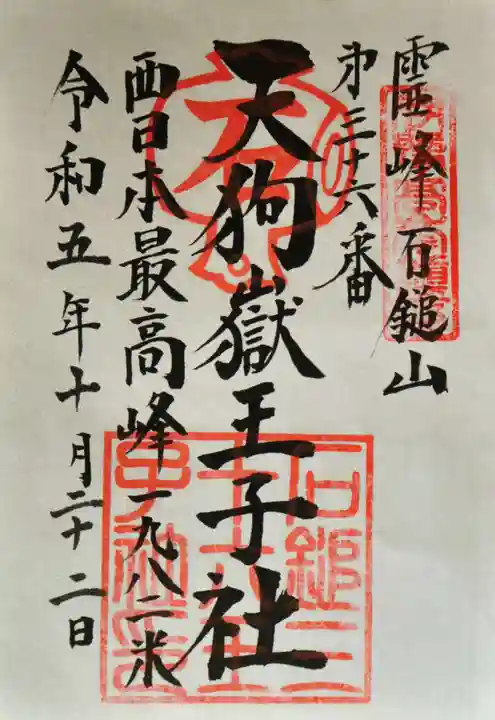 霊峰石鎚山
第三十六番
天狗嶽王子社
西日本最高峰一九八二米
令和五年十月二十二日